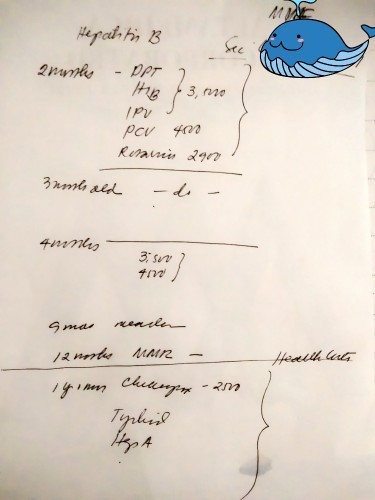 MMR
Hepatitis B
Sec
2 months - DPT
HIB
IPV
3,500
PCV 4500
Rotavirus 2900
3 months old - do -
4 months
3,500
4500
9 mos measles
12 months MMR -
Health Cents
1 yr 1 mon Chickenpox - 2500
Typhoid
Hep A